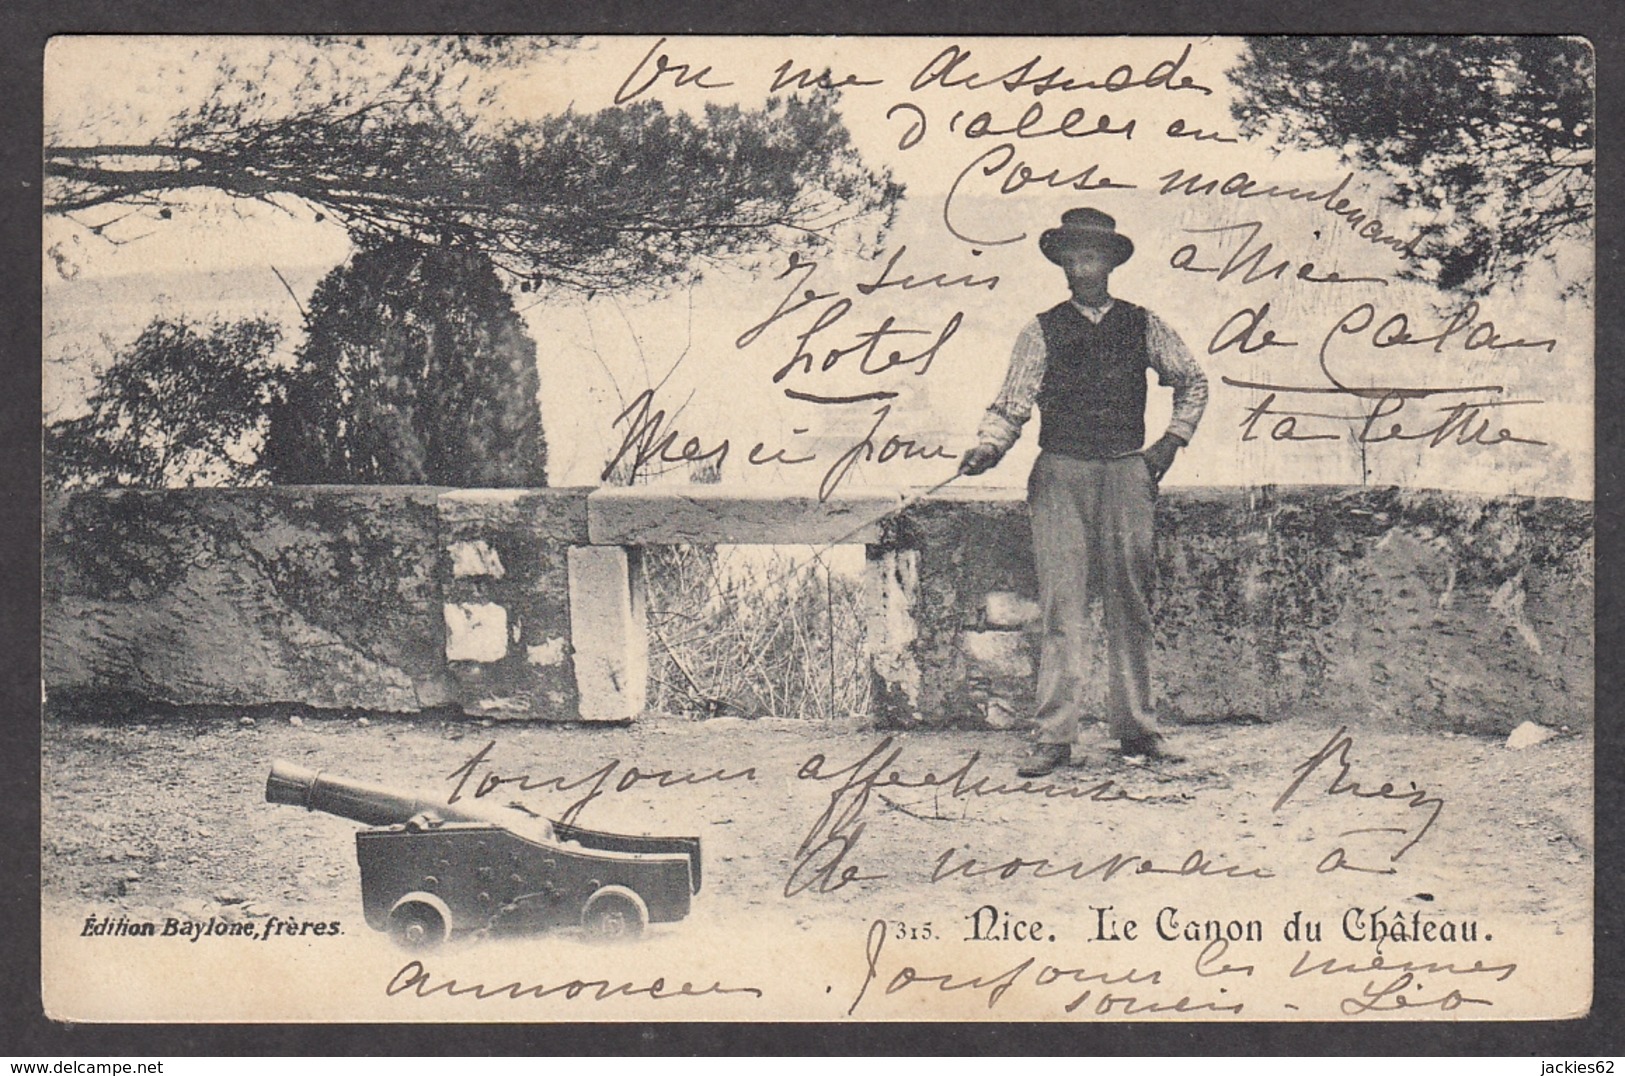 On me dissuade
d'aller en
Corse maintenant
Je suis à Nice
hotel de Calais
Merci pour ta lettre
toujours affectueuse. Rien
de nouveau à
Édition Baylone, frères.
315. Nice. Le Canon du Château.
annoncer. Toujours les mêmes
soucis - Léo
jackies62